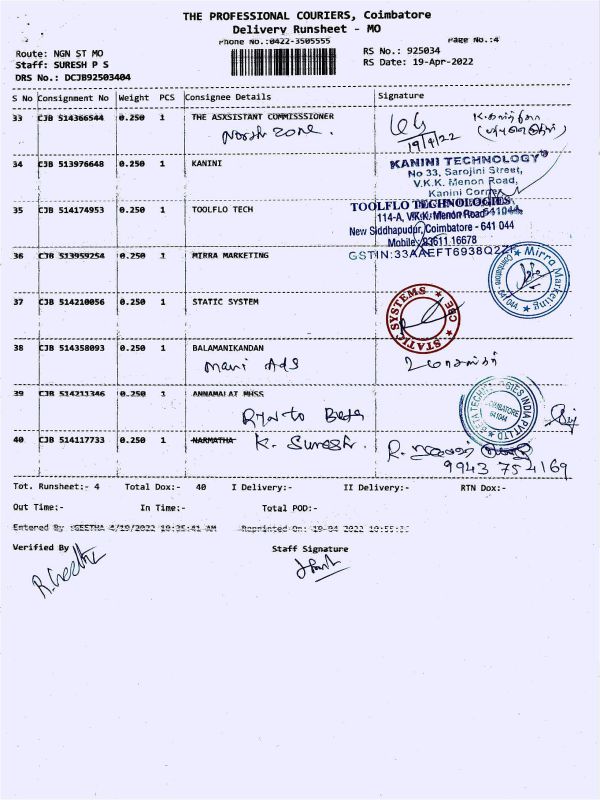 THE PROFESSIONAL COURIERS, Coimbatore
Delivery Runsheet - MO
Phone No.:0422-3505555
Page No.:4
Route: NGN ST MO
RS No.: 925034
Staff: SURESH P S
RS Date: 19-Apr-2022
DRS No.: DCJB92503404
S No Consignment No Weight PCS Consignee Details Signature
33 CJB 514366544 0.250 1 THE ASXSISTANT COMMISSSIONER
North Zone.
19/4/22
34 CJB 513976648 0.250 1 KANINI
KANINI TECHNOLOGY
No 33, Sarojini Street,
V.K.K. Menon Road,
Kanini Corner
35 CJB 514174953 0.250 1 TOOLFLO TECH
TOOLFLO TECHNOLOGIES
114-A, V.K.K. Menon Road
New Siddhapudur, Coimbatore - 641 044
Mobile: 93611 16678
36 CJB 513959254 0.250 1 MIRRA MARKETING
GSTIN:33AAEFT6938Q2Z
Mirra Marketing
37 CJB 514210056 0.250 1 STATIC SYSTEM
STATIC SYSTEMS
CBE
38 CJB 514358093 0.250 1 BALAMANIKANDAN
Mani Ads
39 CJB 514211346 0.250 1 ANNAMALAT MHSS
COIMBATORE
641044
40 CJB 514117733 0.250 1 NARMATHA
K. Suresh.
9943 754169
Tot. Runsheet:- 4 Total Dox:- 40 I Delivery:- II Delivery:- RTN Dox:-
Out Time:- In Time:- Total POD:-
Entered By :GEETHA 4/19/2022 10:35:41 AM Reprinted On: 19-04 2022 10:55:
Verified By
Staff Signature
R. Geetha